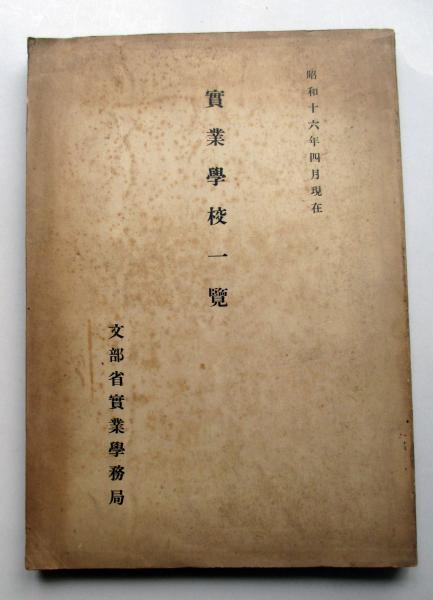 昭和十六年四月現在
實業學校一覽
文部省實業學務局